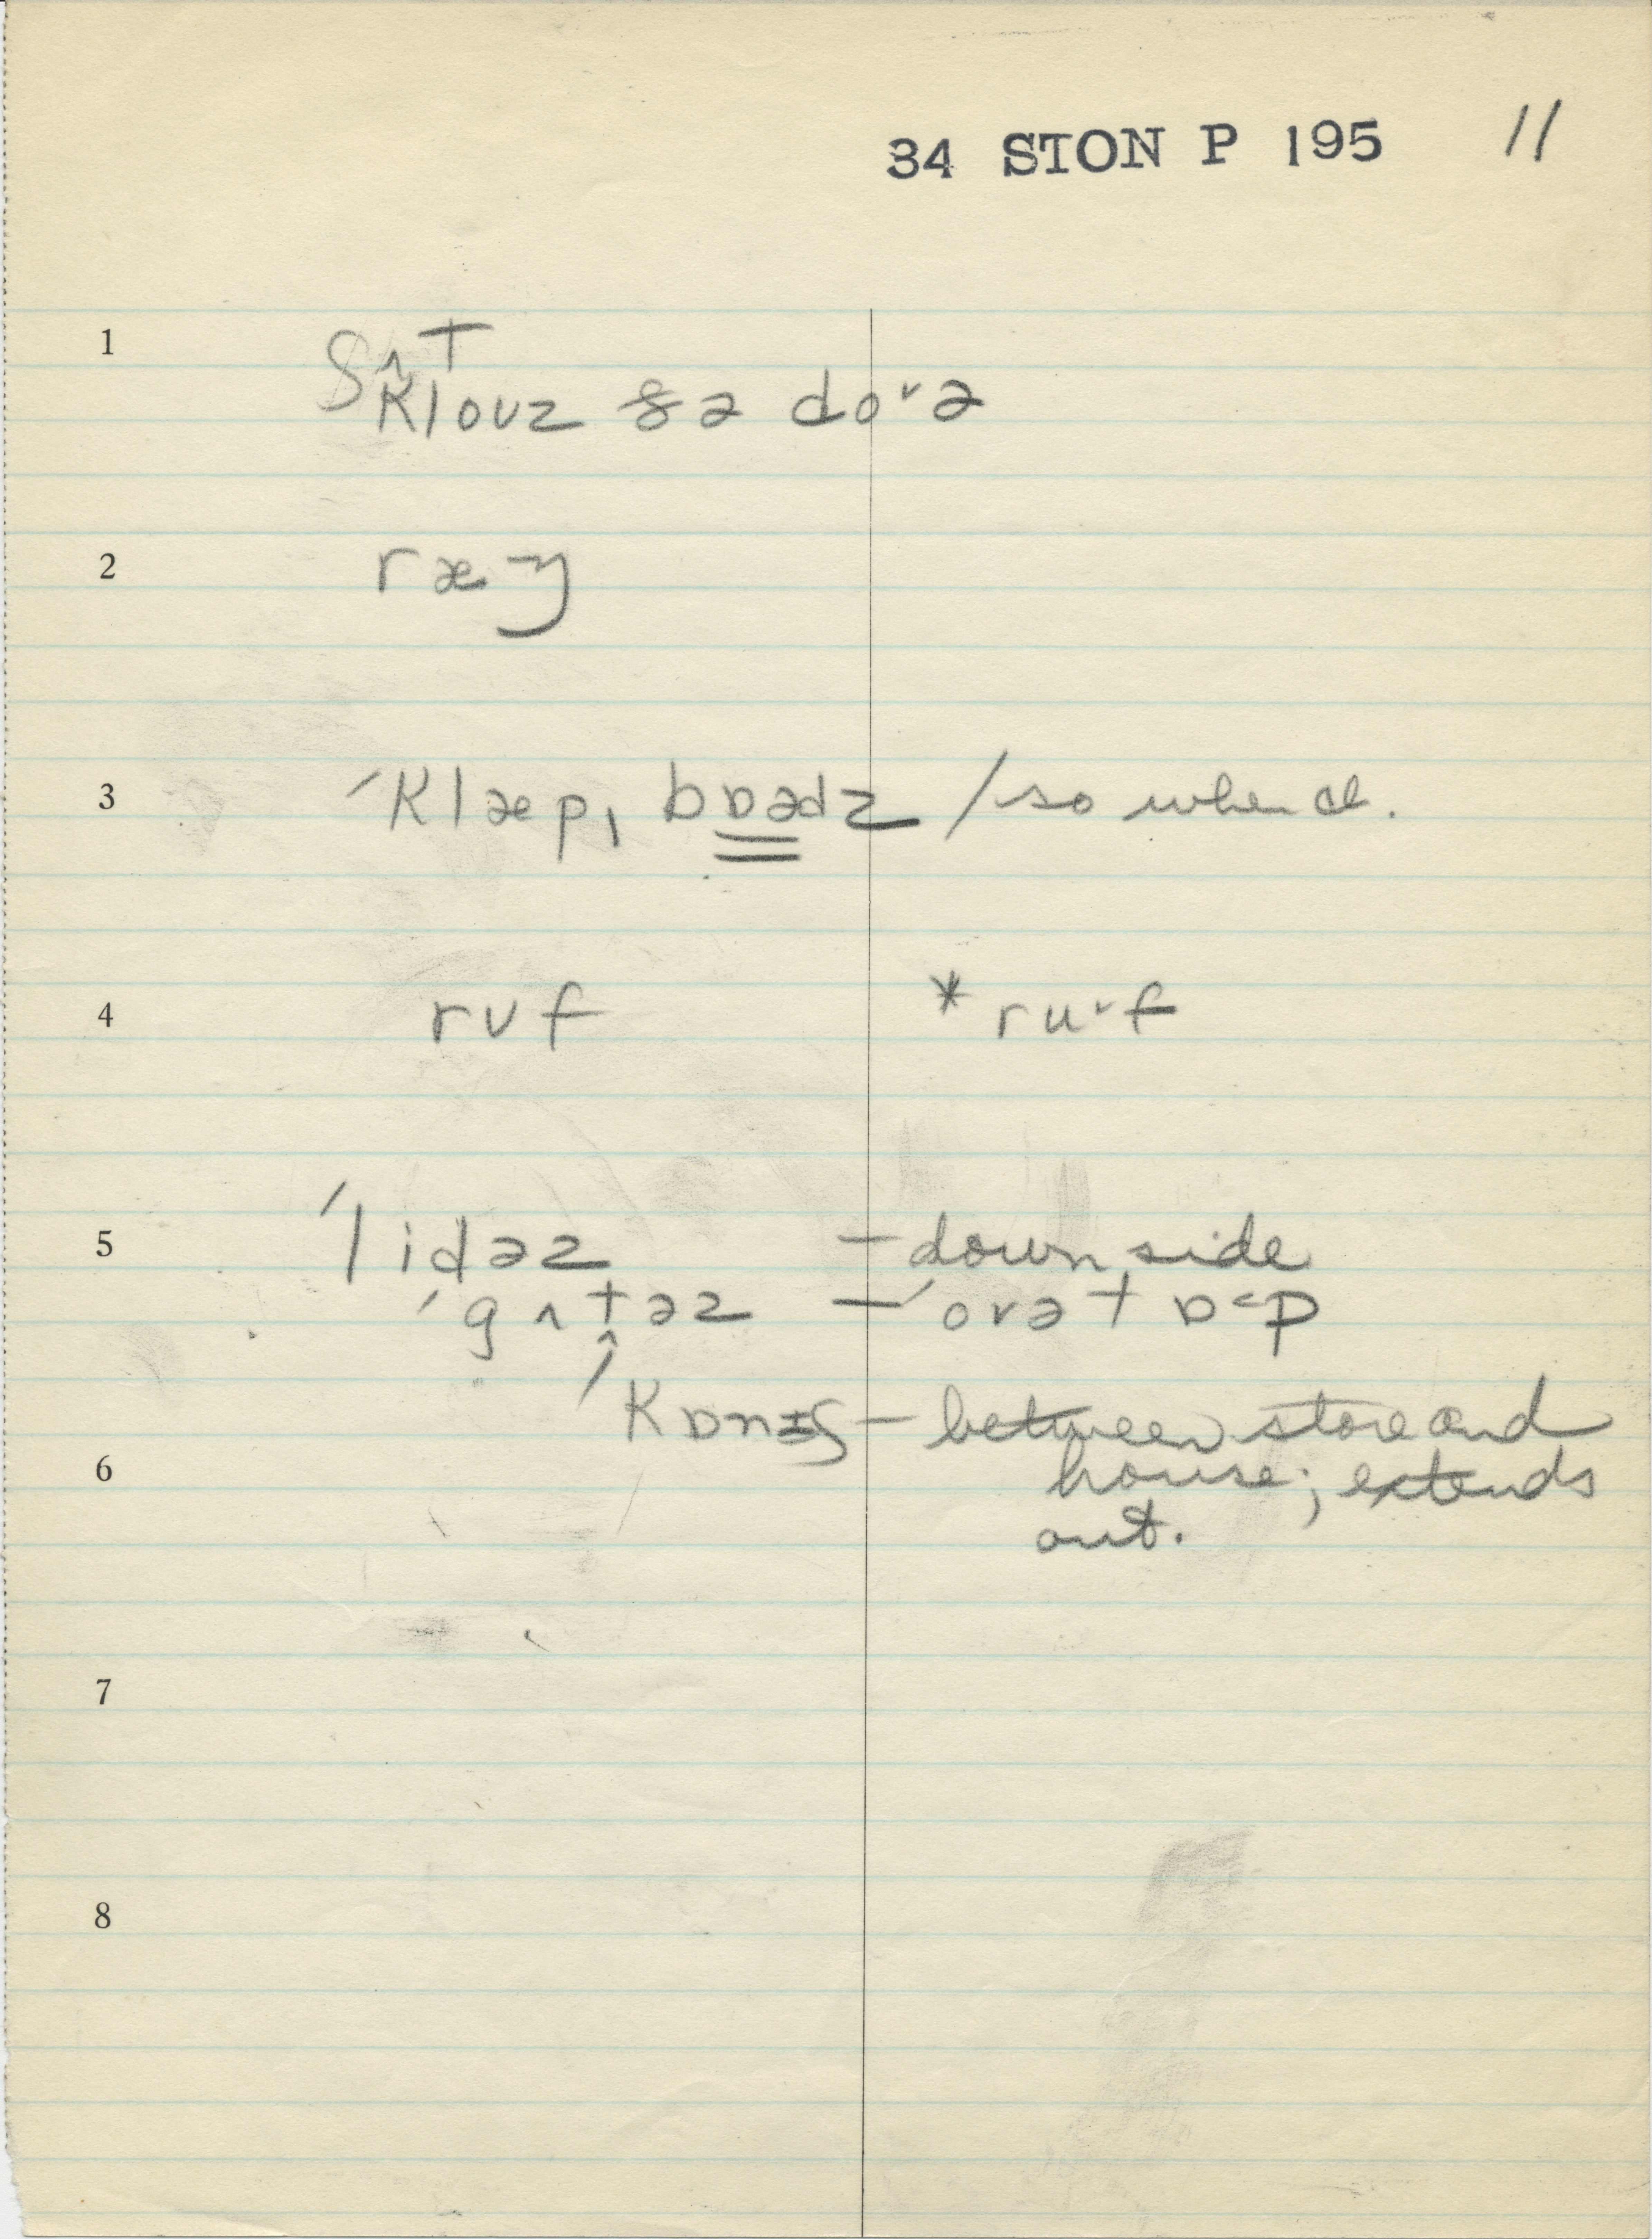 34 STON P 195 11
1
ʃʌT
Klouz ðə do˅ə
2 ræŋ
3 ˊKlæp, bɒədz / so when al.
4 rʊf * ru˅f
5 ˊlidəz — down side
ˊgʌtəz — ˊovə tɒ<p
ˊKɒnɪʃ — between store and
6 house; extends
out.
7
8